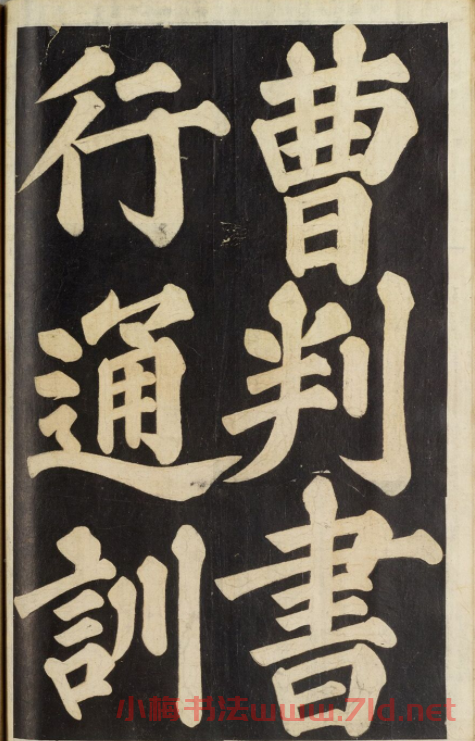 曹判書
行通訓
小樽书法www.7ld.net